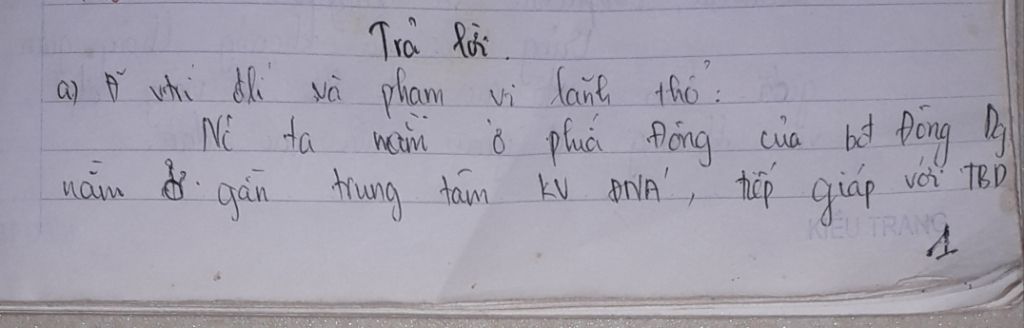 Trả lời.
a) Đ² vtrí địlí và phạm vi lãnh thổ:
Nc ta nằm ở phía Đông của bđ Đông Dg
nằm gần trung tâm KV ĐNA', tiếp giáp với TBD
KIỀU TRANG
1